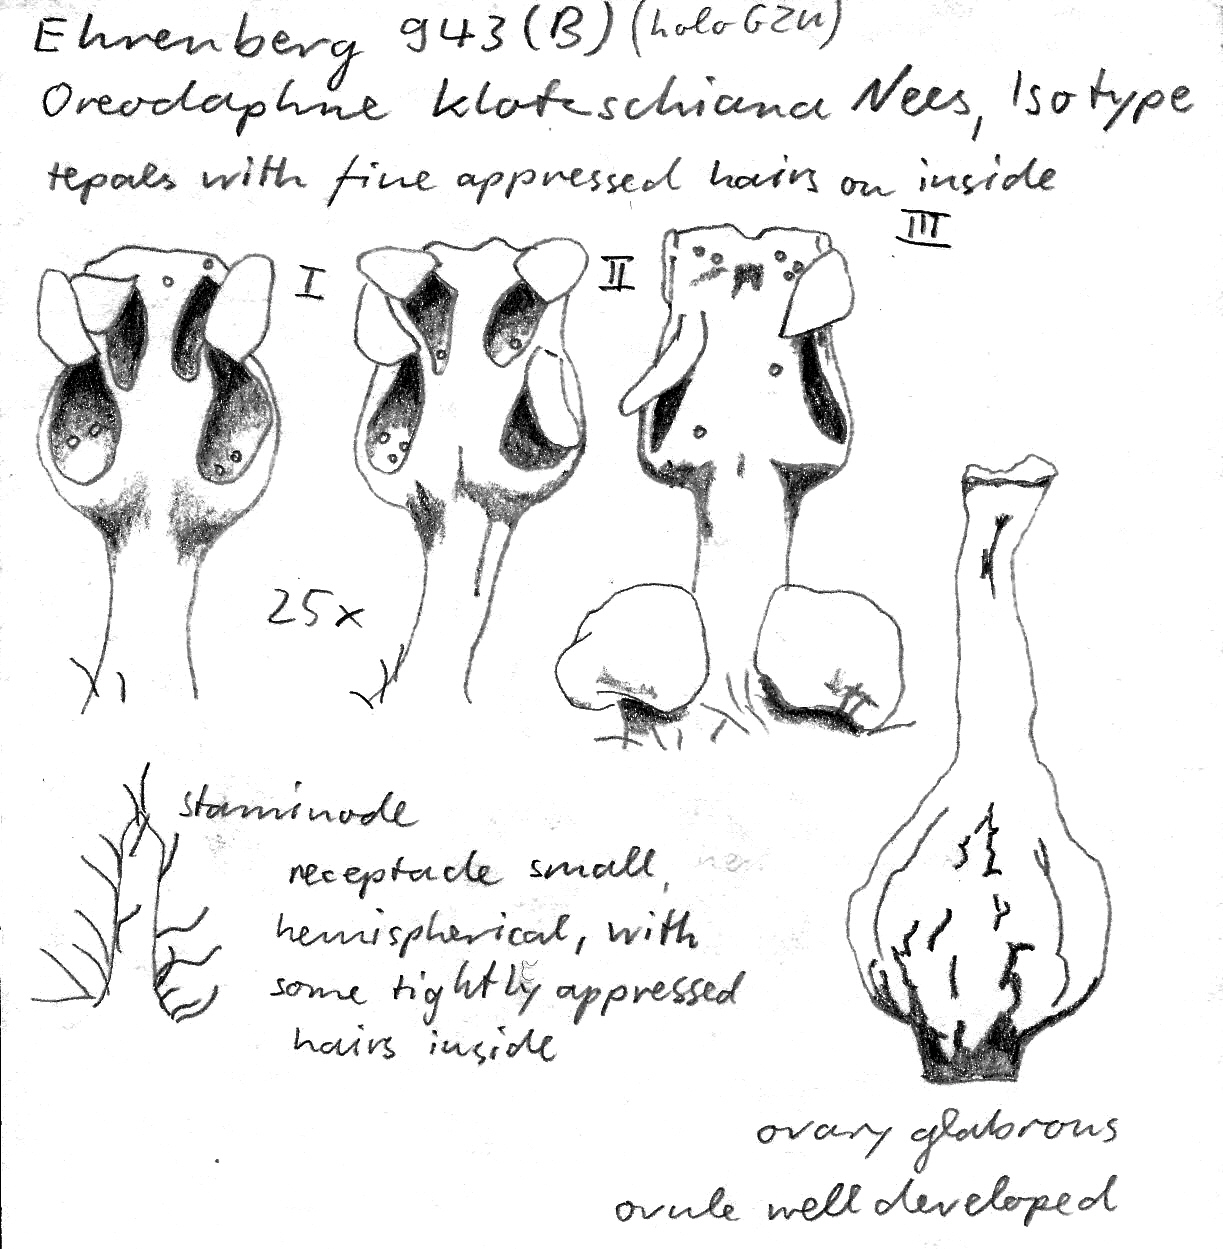 Ehrenberg 943 (B) (holo GZU)
Oreodaphne klotzschiana Nees, Isotype
tepals with fine appressed hairs on inside
III
I
II
25x
staminode
receptacle small,
hemispherical, with
some tightly appressed
hairs inside
ovary glabrous
ovule well developed